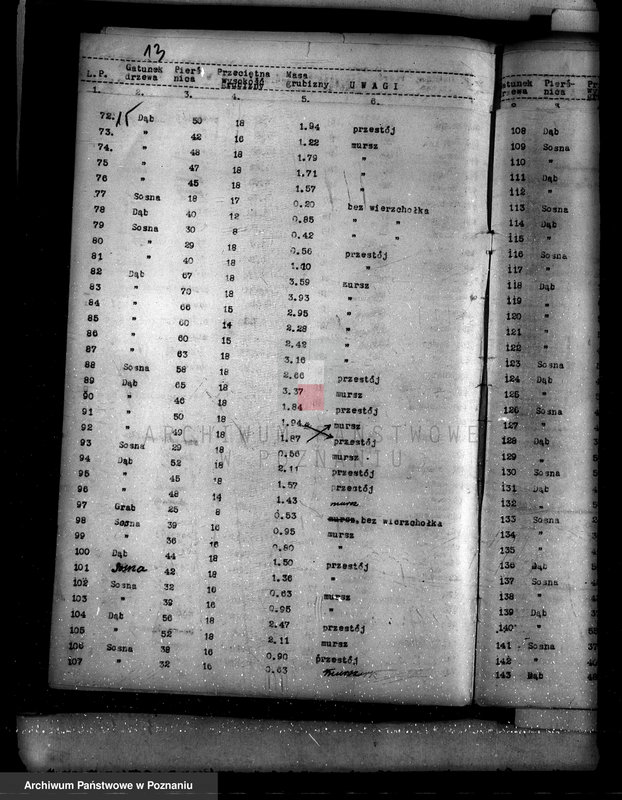 13
L.P. Gatunek drzewa Pierśnica Przeciętna wysokość Masa grubizny UWAGI
1. 2. 3. 4. 5. 6.
72. 15 Dąb 50 18 1.94 przestój
73. " 42 16 1.22 mursz
74. " 48 18 1.79 "
75 " 47 18 1.71 "
76 " 45 18 1.57 "
77 Sosna 18 17 0.20 bez wierzchołka
78 Dąb 40 12 0.85 " "
79 Sosna 30 8 0.42 " "
80 " 29 18 0.56 przestój
81 " 40 18 1.10 "
82 Dąb 67 18 3.59 mursz
83 " 70 18 3.93 "
84 " 66 15 2.95 "
85 " 60 14 2.28 "
86 " 60 15 2.42 "
87 " 63 18 3.16 "
88 Sosna 58 18 2.66 przestój
89 Dąb 65 18 3.37 mursz
90 " 46 18 1.84 przestój
91 " 50 18 1.94 mursz
92 " 49 18 1.87 przestój
93 Sosna 29 18 0.56 mursz
94 Dąb 52 18 2.11 przestój
95 " 45 18 1.57 przestój
96 " 48 14 1.43 mursz
97 Grab 25 8 0.53 mursz, bez wierzchołka
98 Sosna 39 16 0.95 mursz
99 " 36 16 0.80 "
100 Dąb 44 18 1.50 przestój
101 Sosna 42 18 1.36 "
102 Sosna 32 16 0.63 mursz
103 " 39 16 0.95 "
104 Dąb 56 18 2.47 przestój
105 " 52 18 2.11 mursz
106 Sosna 38 16 0.90 przestój
107 " 32 16 0.63 mursz
108 Dąb
109 Sosna
110 "
111 Dąb
112 "
113 Sosna
114 Dąb
115 "
116 Sosna
117 "
118 Dąb
119 "
120 "
121 "
122 "
123 Sosna
124 Dąb
125 "
126 Sosna
127 "
128 Dąb
129 "
130 Sosna
131 Dąb
132 "
133 Sosna
134 "
135 "
136 Dąb
137 Sosna
138 "
139 Dąb
140 "
141 Sosna
142 "
143 Dąb
ARCHIWUM PAŃSTWOWE
W POZNANIU
Archiwum Państwowe w Poznaniu